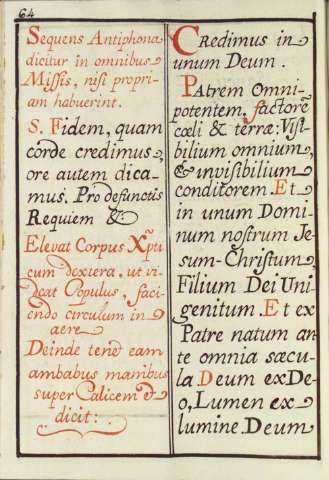 64
Sequens Antiphona
dicitur in omnibus
Missis, nisi propri-
am habuerint.
S. Fidem, quam
corde credimus,
ore autem dica-
mus. Pro defunctis
Requiem &
Elevat Corpus Xpti
cum dextera, ut vi-
deat Populus, faci-
endo circulum in
aere
Deinde tenens eam
ambabus manibus
super Calicem &
dicit:
Credimus in
unum Deum.
Patrem Omni-
potentem, factorē
cœli & terræ: Visi-
bilium omnium,
& invisibilium
conditorem. Et
in unum Domi-
num nostrum Je-
sum-Christum
Filium Dei Uni
genitum. Et ex
Patre natum an-
te omnia sæcu-
la Deum ex De-
o, Lumen ex
lumine. Deum